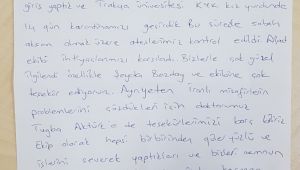 giriş yaptık ve Trakya üniversitesi KYK kız yurdunda
14 gün karantinamızı geçirdik Bu sürede sabah
akşam olmak üzere ateşlerimiz kontrol edildi
ekibi ihtiyaçlarımızı karşıladı. Bizlerle çok güzel
ilgilendi özellikle Şeyda Bozdağ ve ekibine çok
teşekkür ediyoruz. Ayrıyeten İranlı misafirlerin
problemlerini çözdükleri için doktorumuz
Tuğba Aktürk'e de teşekkürlerimizi borç biliriz
Ekip olarak hepsi birbirinden güler yüzlü ve
işlerini severek yaptıkları ve bizleri memnun